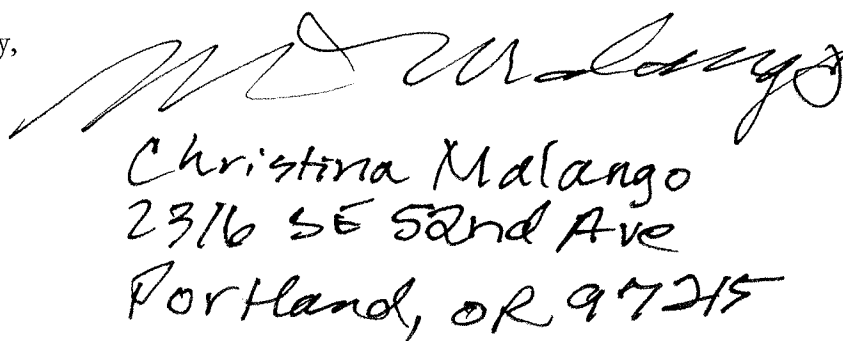 y,
Christina Malango
2316 SE 52nd Ave
Portland, OR 97215